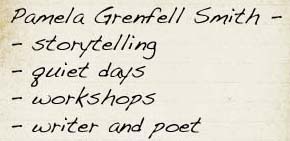 Pamela Grenfell Smith -
- storytelling
- quiet days
- workshops
- writer and poet